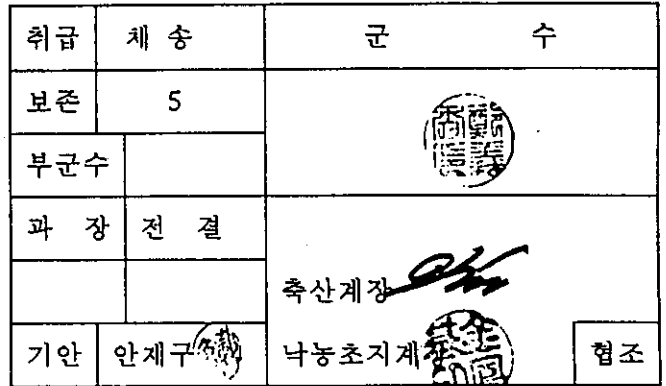 취급 체송 군 수
보존 5
부군수
과 장 전 결
축산계장
기안 안재구 낙농초지계장 협조